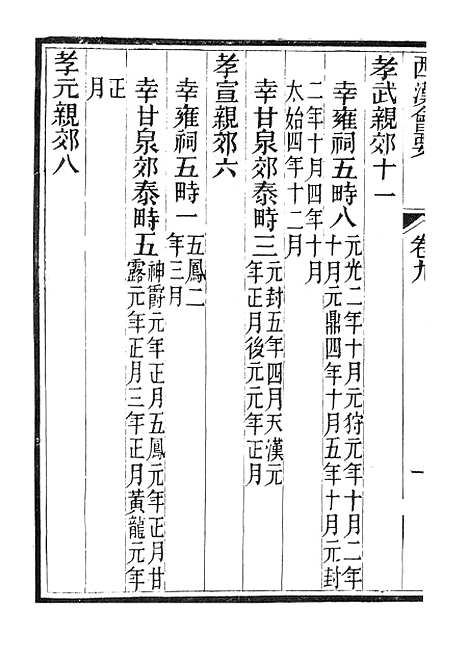 西漢會要 卷九 一
孝武親郊十一
幸雍祠五畤八 元光二年十月元狩元年十月二年
十月元鼎四年十月五年十月元封
二年十月四年十月
太始四年十二月
幸甘泉郊泰畤三 元封五年四月天漢元
年正月後元元年正月
孝宣親郊六
幸雍祠五畤一 五鳳二
年三月
幸甘泉郊泰畤五 神爵元年正月五鳳元年正月甘
露元年正月三年正月黃龍元年
正
月
孝元親郊八